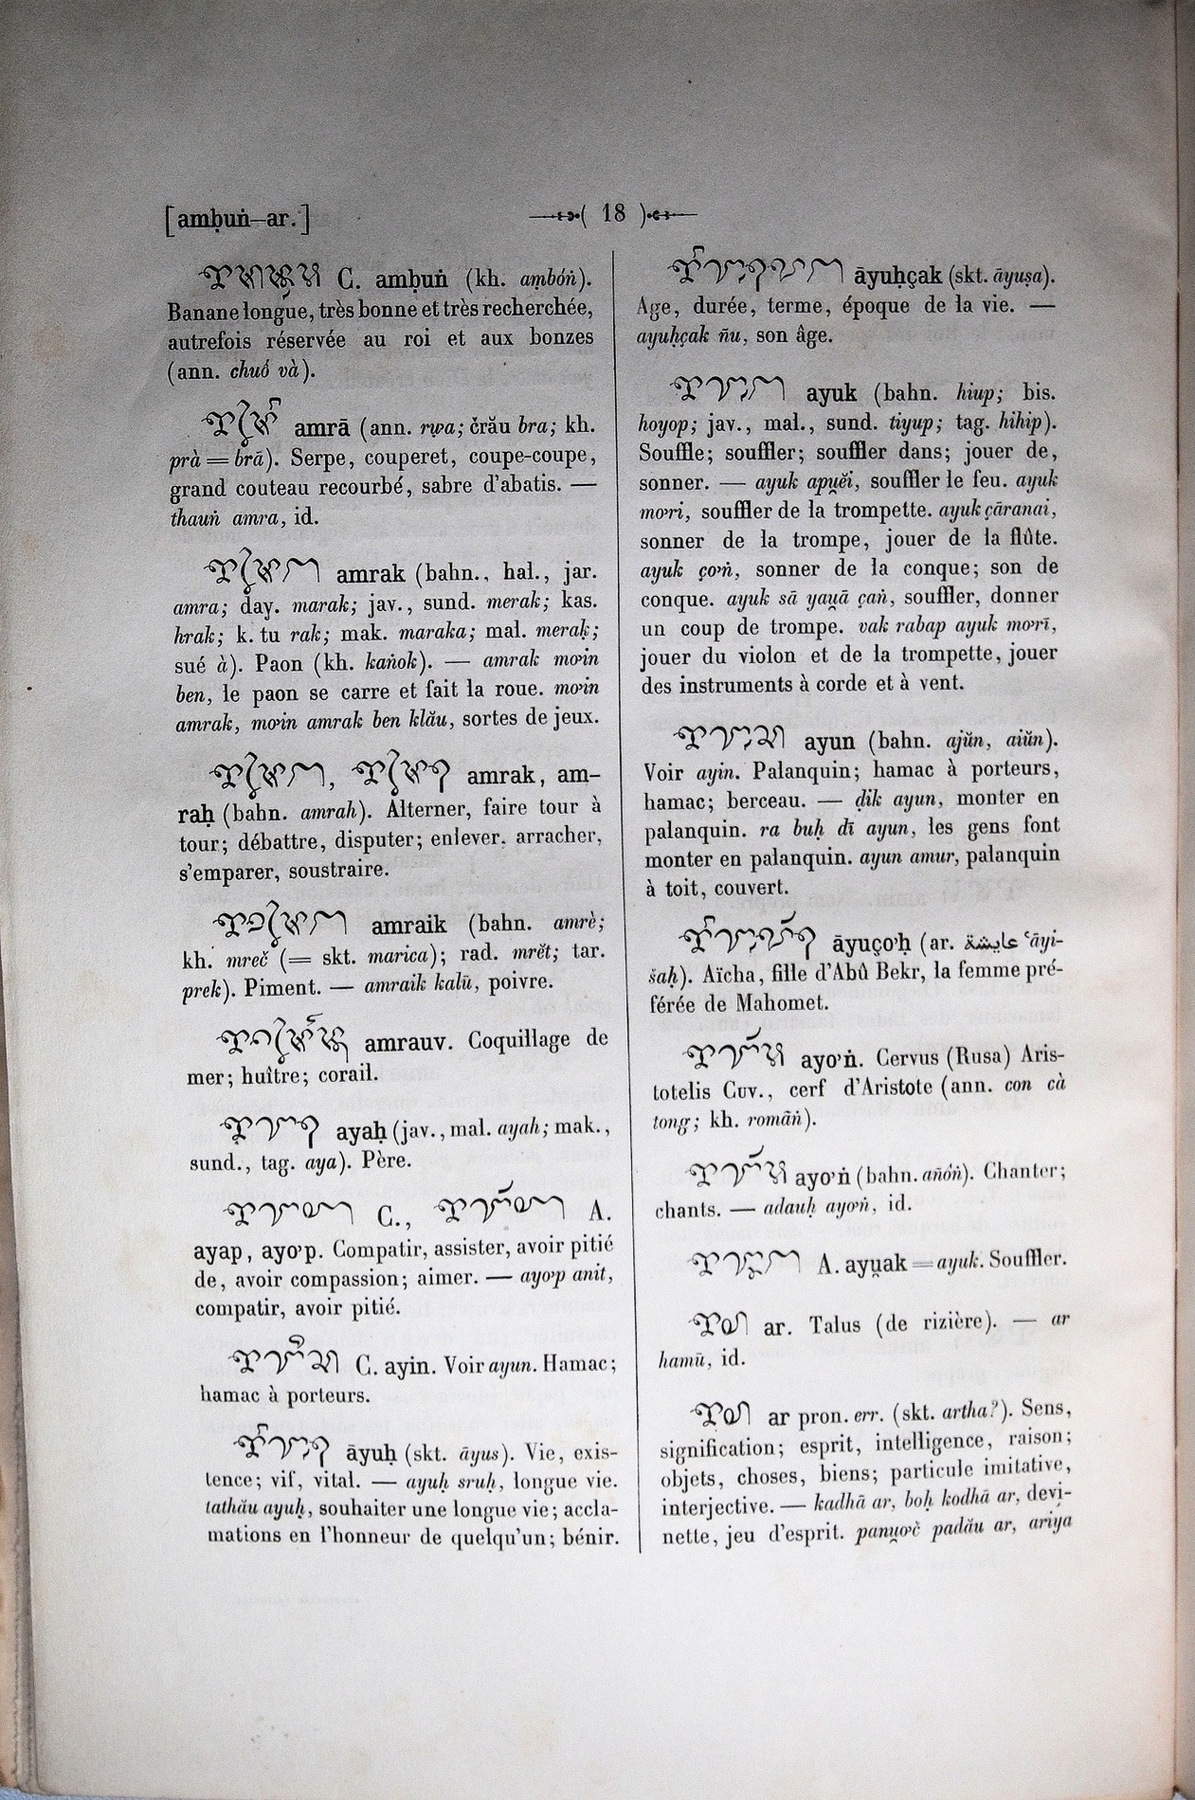 [amḅuṅ–ar.]
( 18 )
C. amḅuṅ (kh. aṃbóṅ).
Banane longue, très bonne et très recherchée,
autrefois réservée au roi et aux bonzes
(ann. chuó và).
amrā (ann. rwa; črău bra; kh.
prà = brā). Serpe, couperet, coupe-coupe,
grand couteau recourbé, sabre d'abatis. —
thauṅ amra, id.
amrak (bahn., hal., jar.
amra; day. marak; jav., sund. merak; kas.
hrak; k. tu rak; mak. maraka; mal. merak;
sué à). Paon (kh. kaṅok). — amrak mơin
ben, le paon se carre et fait la roue. mơin
amrak, mơin amrak ben klău, sortes de jeux.
amrak, am-
raḥ (bahn. amrah). Alterner, faire tour à
tour; débattre, disputer; enlever, arracher,
s'emparer, soustraire.
amraik (bahn. amrè;
kh. mreč (= skt. marica); rad. mrĕt; tar.
prek). Piment. — amraik kalū, poivre.
amrauv. Coquillage de
mer; huître; corail.
ayaḥ (jav., mal. ayah; mak.,
sund., tag. aya). Père.
C., A.
ayap, ayơp. Compatir, assister, avoir pitié
de, avoir compassion; aimer. — ayơp anit,
compatir, avoir pitié.
C. ayin. Voir ayun. Hamac;
hamac à porteurs.
āyuḥ (skt. āyus). Vie, exis-
tence; vif, vital. — ayuḥ sruḥ, longue vie.
tathău ayuḥ, souhaiter une longue vie; accla-
mations en l'honneur de quelqu'un; bénir.
āyuḥçak (skt. āyuṣa).
Age, durée, terme, époque de la vie. —
ayuḥçak ñu, son âge.
ayuk (bahn. hiup; bis.
hoyop; jav., mal., sund. tiyup; tag. hihip).
Souffle; souffler; souffler dans; jouer de,
sonner. — ayuk apu̯ĕi, souffler le feu. ayuk
mơri, souffler de la trompette. ayuk çāranai,
sonner de la trompe, jouer de la flûte.
ayuk çơṅ, sonner de la conque; son de
conque. ayuk sā yau̯ā çaṅ, souffler, donner
un coup de trompe. vak rabap ayuk mơrī,
jouer du violon et de la trompette, jouer
des instruments à corde et à vent.
ayun (bahn. ajŭn, aiŭn).
Voir ayin. Palanquin; hamac à porteurs,
hamac; berceau. — ḍik ayun, monter en
palanquin. ra buḥ dī ayun, les gens font
monter en palanquin. ayun amur, palanquin
à toit, couvert.
āyuçơḥ (ar. عايشة ʿāyi-
šaḥ). Aïcha, fille d'Abû Bekr, la femme pré-
férée de Mahomet.
ayơṅ. Cervus (Rusa) Aris-
totelis Cuv., cerf d'Aristote (ann. con cà
tong; kh. romāṅ).
ayơṅ (bahn. añóṅ). Chanter;
chants. — adauḥ ayơṅ, id.
A. ayu̯ak = ayuk. Souffler.
ar. Talus (de rizière). — ar
hamū, id.
ar pron. err. (skt. artha?). Sens,
signification; esprit, intelligence, raison;
objets, choses, biens; particule imitative,
interjective. — kadhā ar, boḥ kodhā ar, devi-
nette, jeu d'esprit. panu̯ơč padău ar, ariya